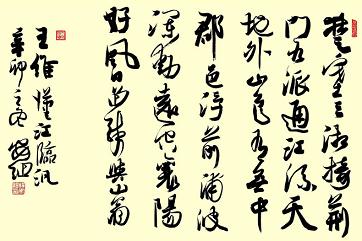 楚塞三湘接荊
門九派通江流天
地外山色有無中
郡邑浮前浦波
瀾動遠空襄陽
好風日留醉與山翁
王維漢江臨汎
辛卯之